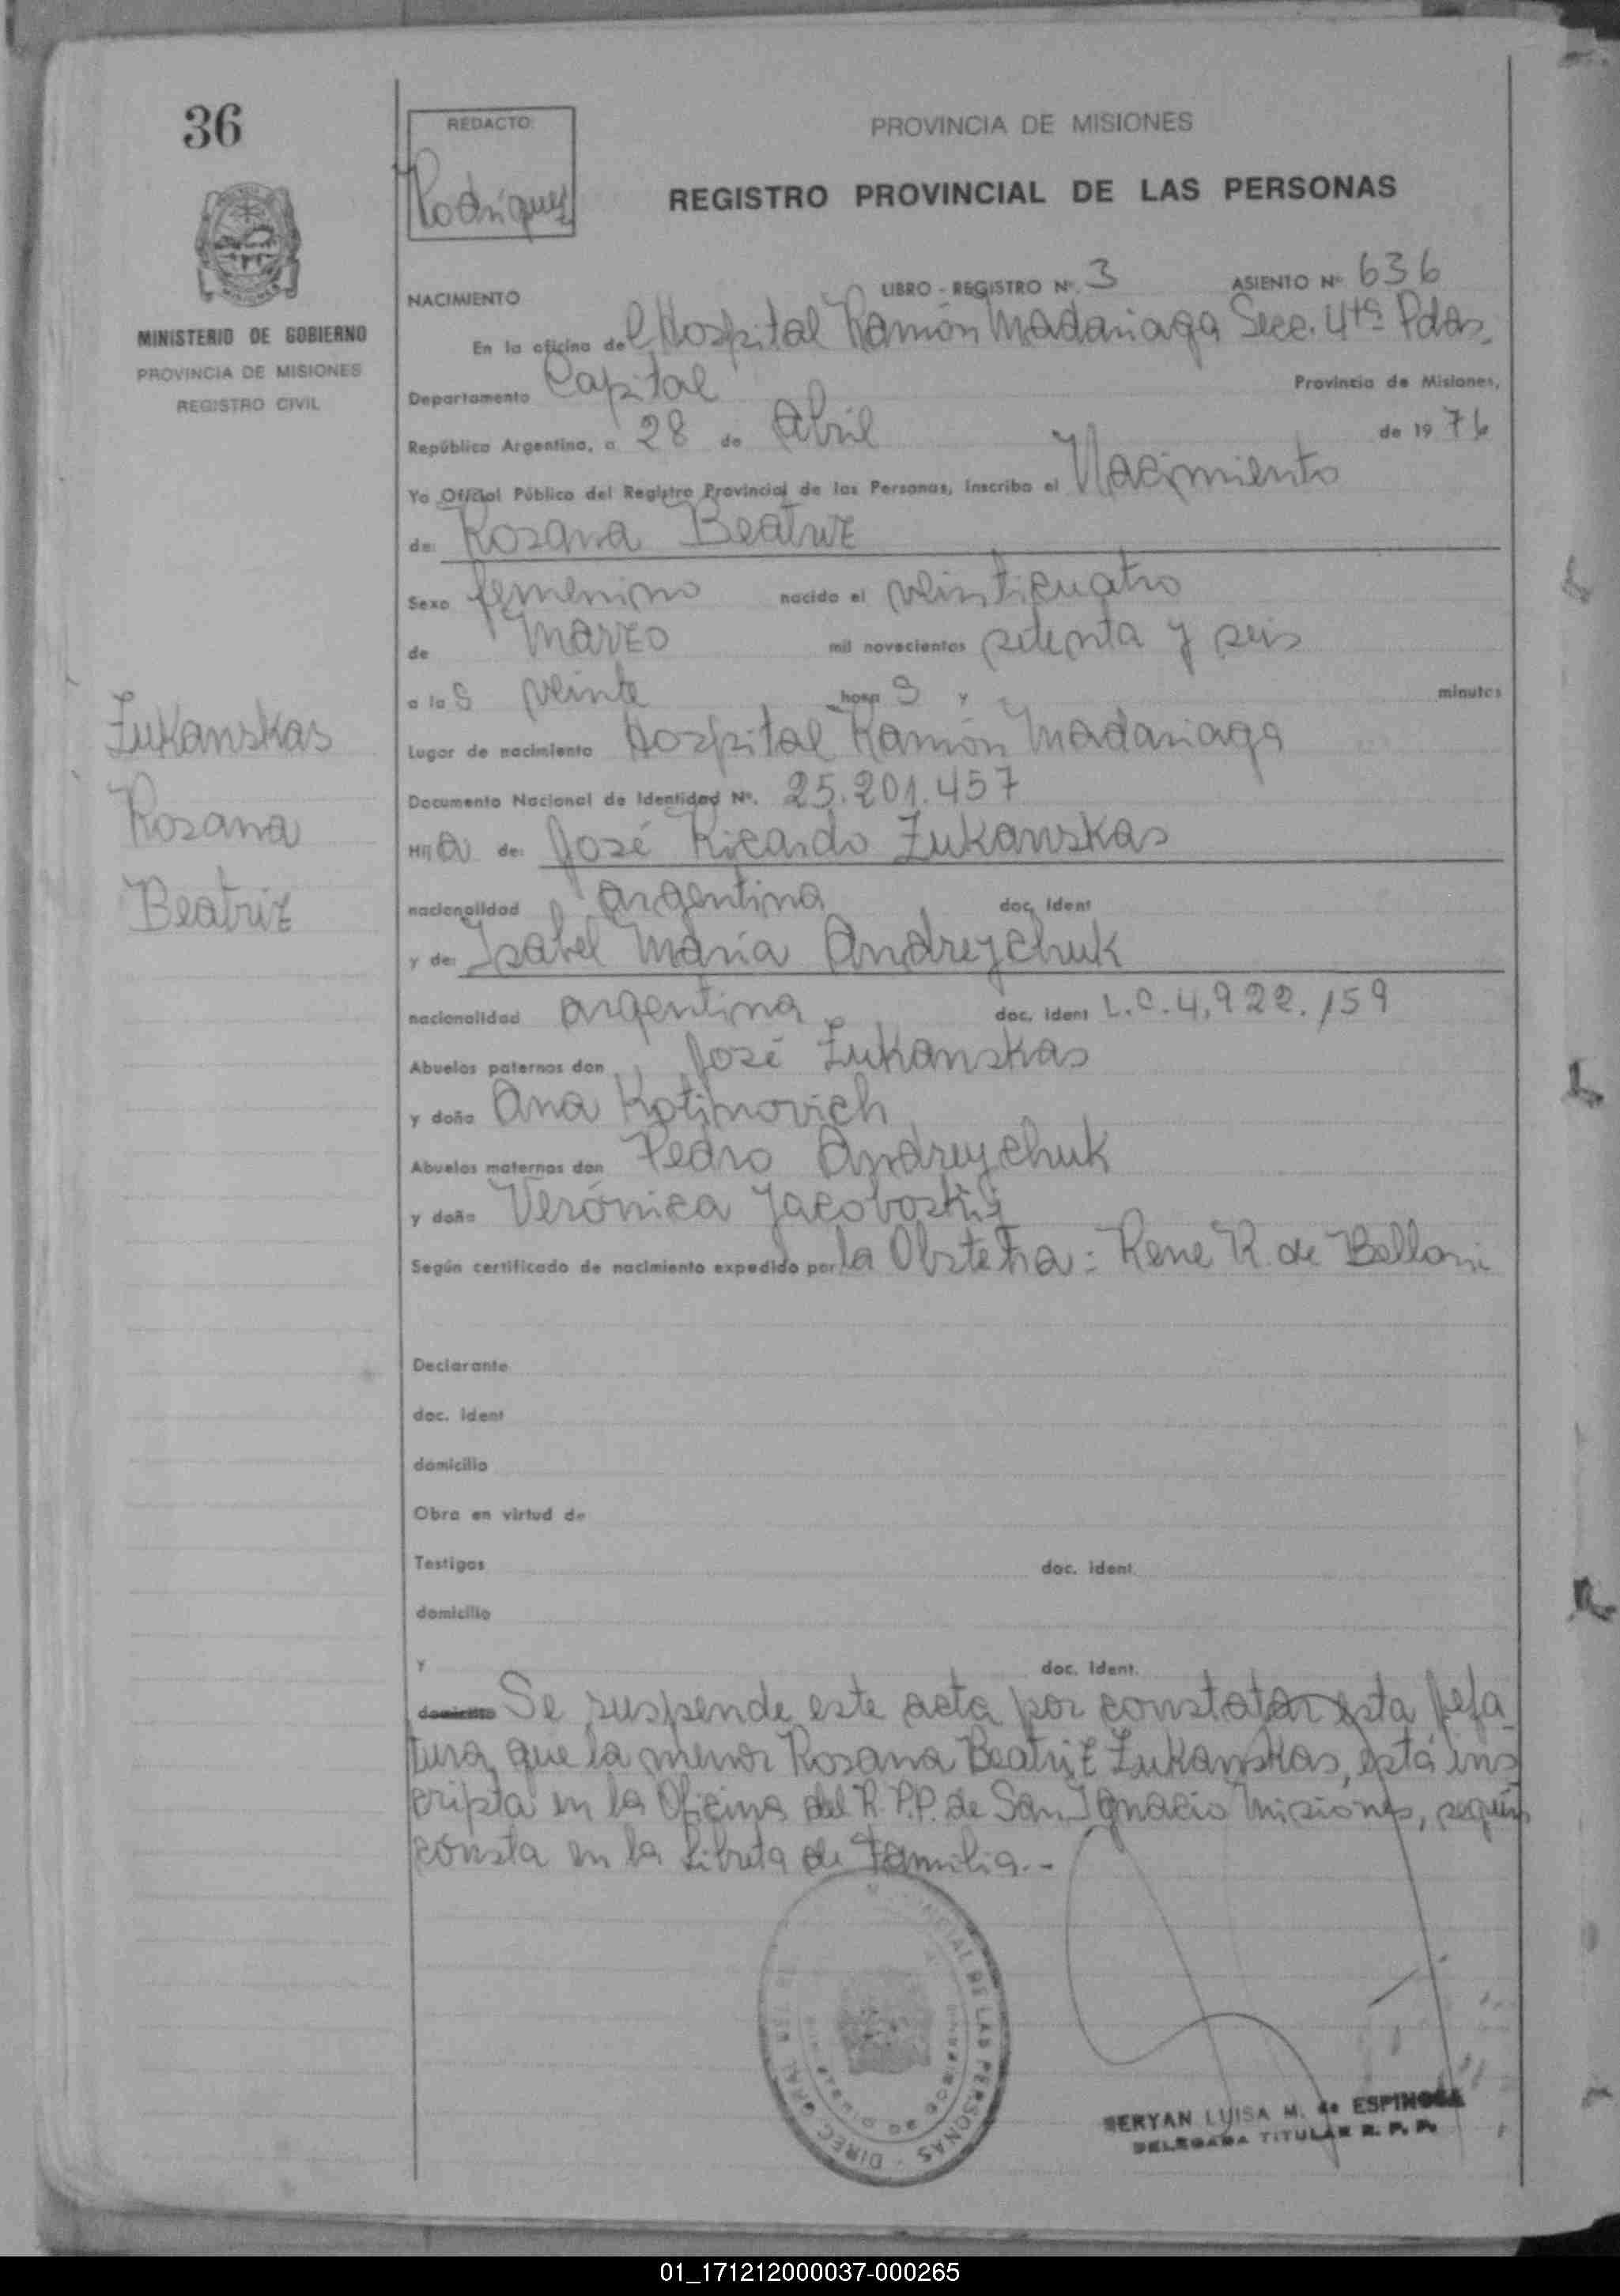 36
REDACTO:
Rodriguez
PROVINCIA DE MISIONES
REGISTRO PROVINCIAL DE LAS PERSONAS
MINISTERIO DE GOBIERNO
PROVINCIA DE MISIONES
REGISTRO CIVIL
NACIMIENTO LIBRO - REGISTRO Nº. 3 ASIENTO Nº 636
En la oficina del Hospital Ramón Madariaga Secc. 4ta Pdas.
Departamento Capital Provincia de Misiones,
República Argentina, a 28 de Abril de 1976
Yo Oficial Público del Registro Provincial de las Personas, inscribo el Nacimiento
de: Rosana Beatriz
Sexo femenino nacido el veinticuatro
de marzo mil novecientos setenta y seis
a las veinte horas y minutos
Lugar de nacimiento Hospital Ramón Madariaga
Documento Nacional de Identidad Nº. 25.201.457
Hija de: José Ricardo Zukanskas
nacionalidad argentina doc. ident
y de: Isabel María Andreychuk
nacionalidad argentina doc. ident L.C. 4,922.159
Abuelos paternos don José Zukanskas
y doña Ana Kotimovich
Abuelos maternos don Pedro Andreychuk
y doña Verónica Jacoboskij
Según certificado de nacimiento expedido por la Obstetra: Rene R. de Belloni
Zukanskas
Rosana
Beatriz
Declarante
doc. ident
domicilio
Obra en virtud de
Testigos doc. ident.
domicilio
y doc. ident.
domicilio Se suspende este acta por constatar esta Jefa
tura, que la menor Rosana Beatriz Zukanskas, está ins
cripta en la Oficina del R.P.P. de San Ignacio Misiones, según
consta en la Libreta de Familia.-
DE LAS PERSONAS - DIREC. GRAL.
SERYAN LUISA M. de ESPINOSA
DELEGADA TITULAR R. P. P.
01_171212000037-000265